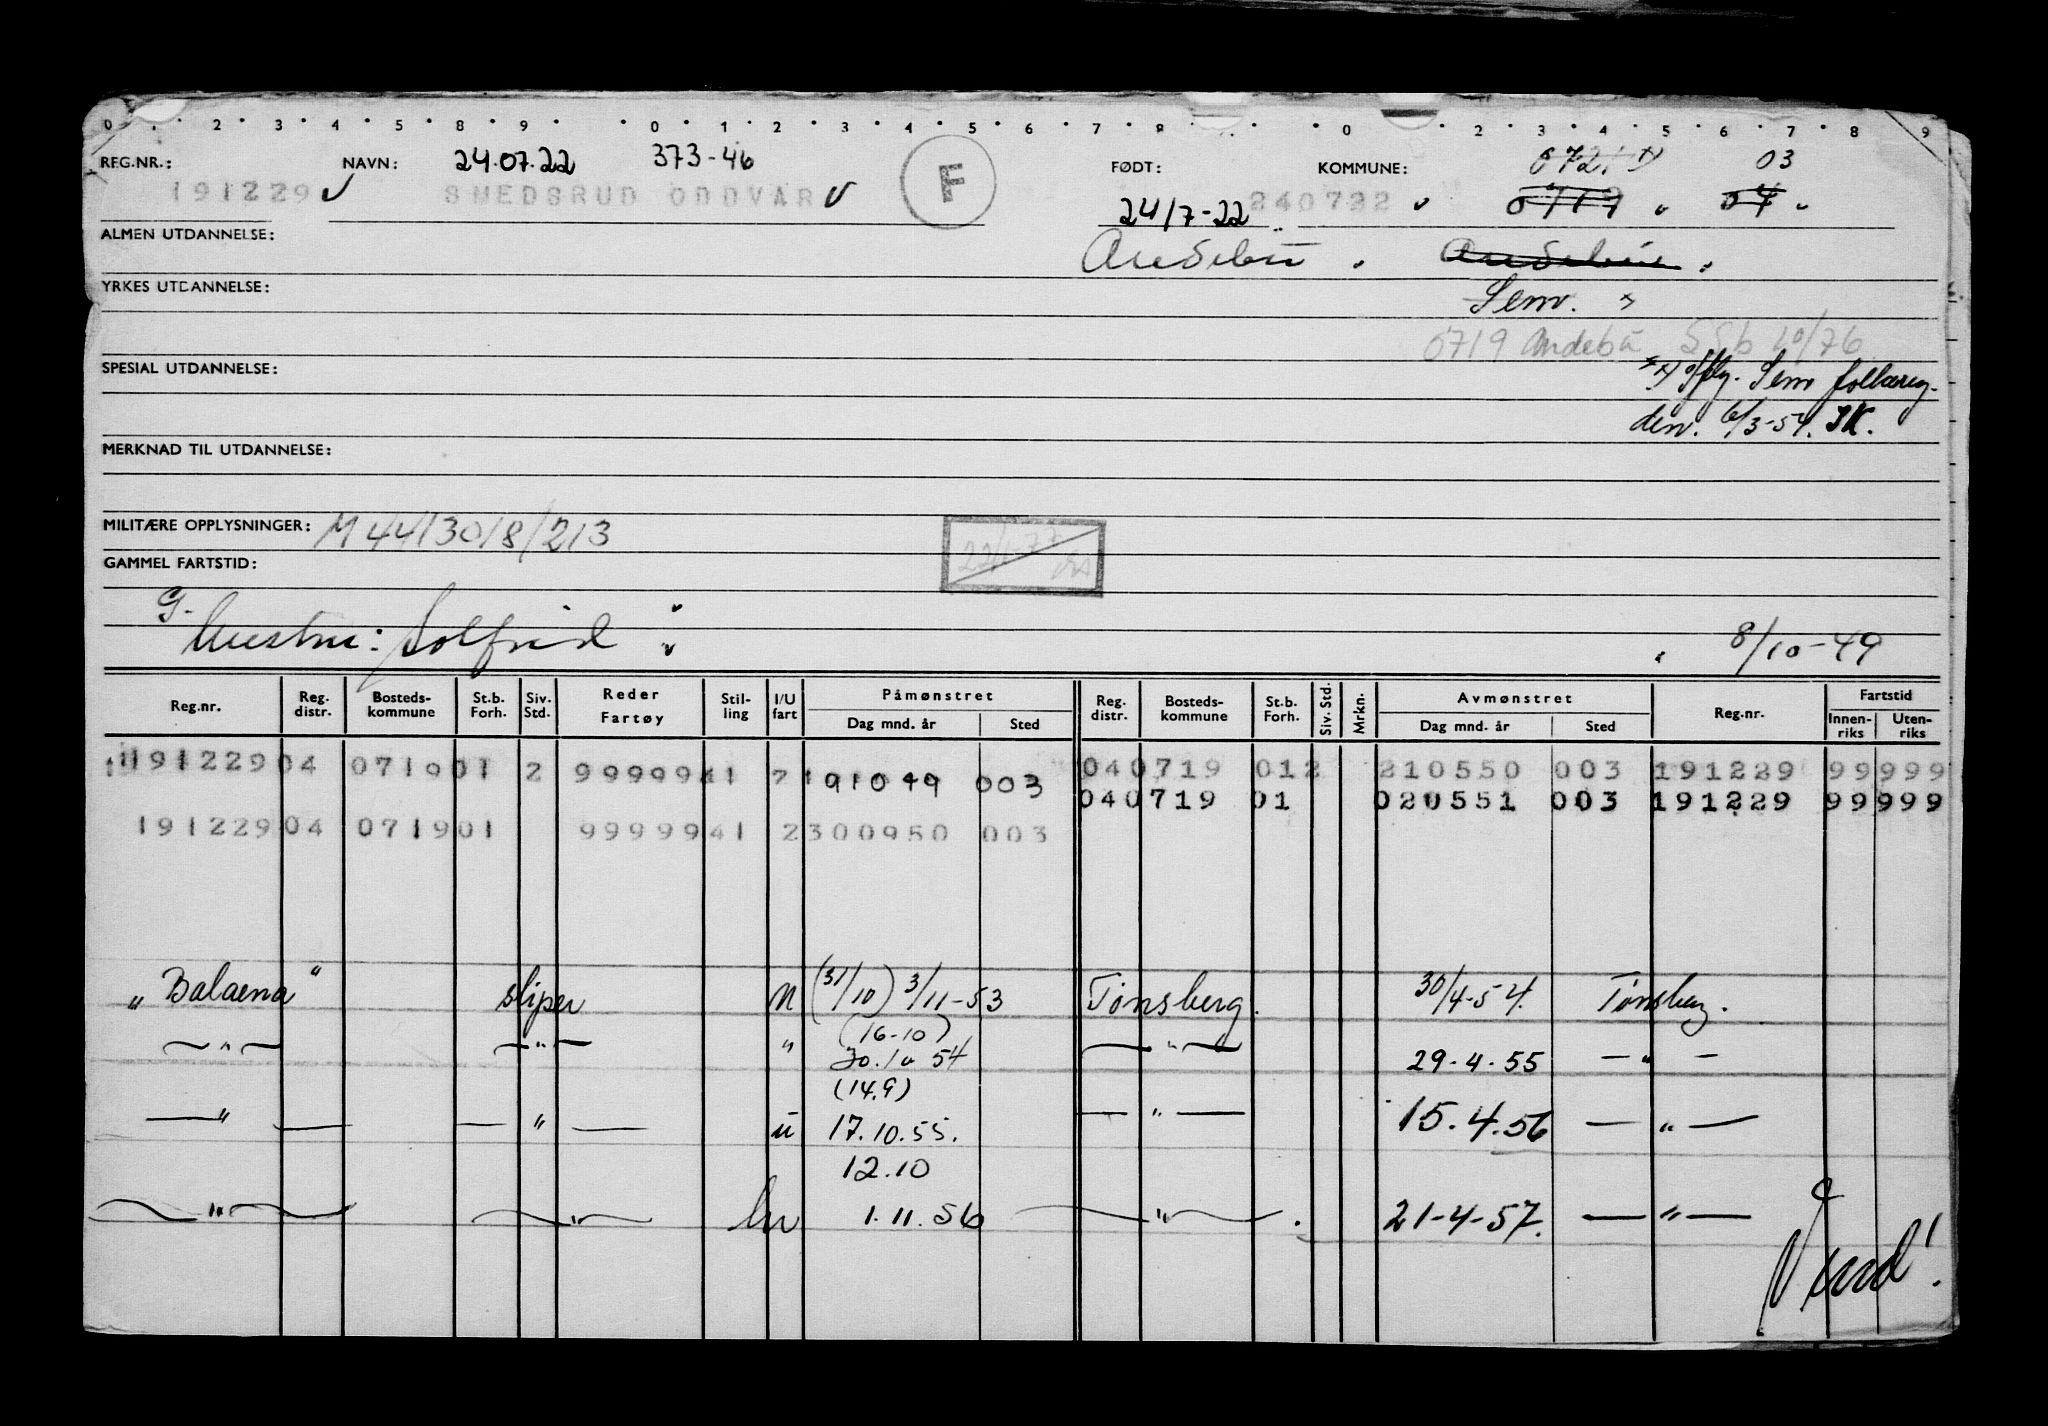 0 . 2 3 4 5 8 9 0 1 2 3 4 5 6 7 8 0 2 3 4 5 6 7 8 9
REG.NR.: NAVN: 24.07.22 373-46 FØDT: KOMMUNE: 0721 x) 03
191229 SMEDSRUD ODDVAR F 24/7-22 240722 0719 07
ALMEN UTDANNELSE: Andebu Andebu
YRKES UTDANNELSE: Sem. x
0719 Andebu SSb 10/76
SPESIAL UTDANNELSE: x) Oppl. Sem folkereg.
den. 6/3-54. JK.
MERKNAD TIL UTDANNELSE:
MILITÆRE OPPLYSNINGER: M 44/3018/213
GAMMEL FARTSTID: 22/1-77
G.
Hustru: Solfrid 8/10-49
Reg.nr. Reg. distr. Bosteds-kommune St.b. Forh. Siv. Std. Reder Fartøy Stil-ling I/U fart Påmønstret Dag mnd. år Sted Reg. distr. Bosteds-kommune St.b. Forh. Siv. Std. Mrkn. Avmønstret Dag mnd. år Sted Reg.nr. Fartstid Innen-riks Uten-riks
191229 04 0719 01 2 99999 41 2 191049 003 04 0719 01 2 210550 003 191229 99 999
04 0719 01 020551 003 191229 99 999
191229 04 0719 01 99999 41 2 300950 003
„Balaena" sliper u (31/10) 3/11-53 Tønsberg. 30/4-54. Tønsberg.
(16-10)
— " — — " — " 30.10 54 — " — 29-4-55 — " —
(14.9)
— " — — " — u 17.10.55. — " — 15.4.56 — " —
12.10
— " — — " — hv 1.11.56 — " — . 21-4-57. — " —
Vend!